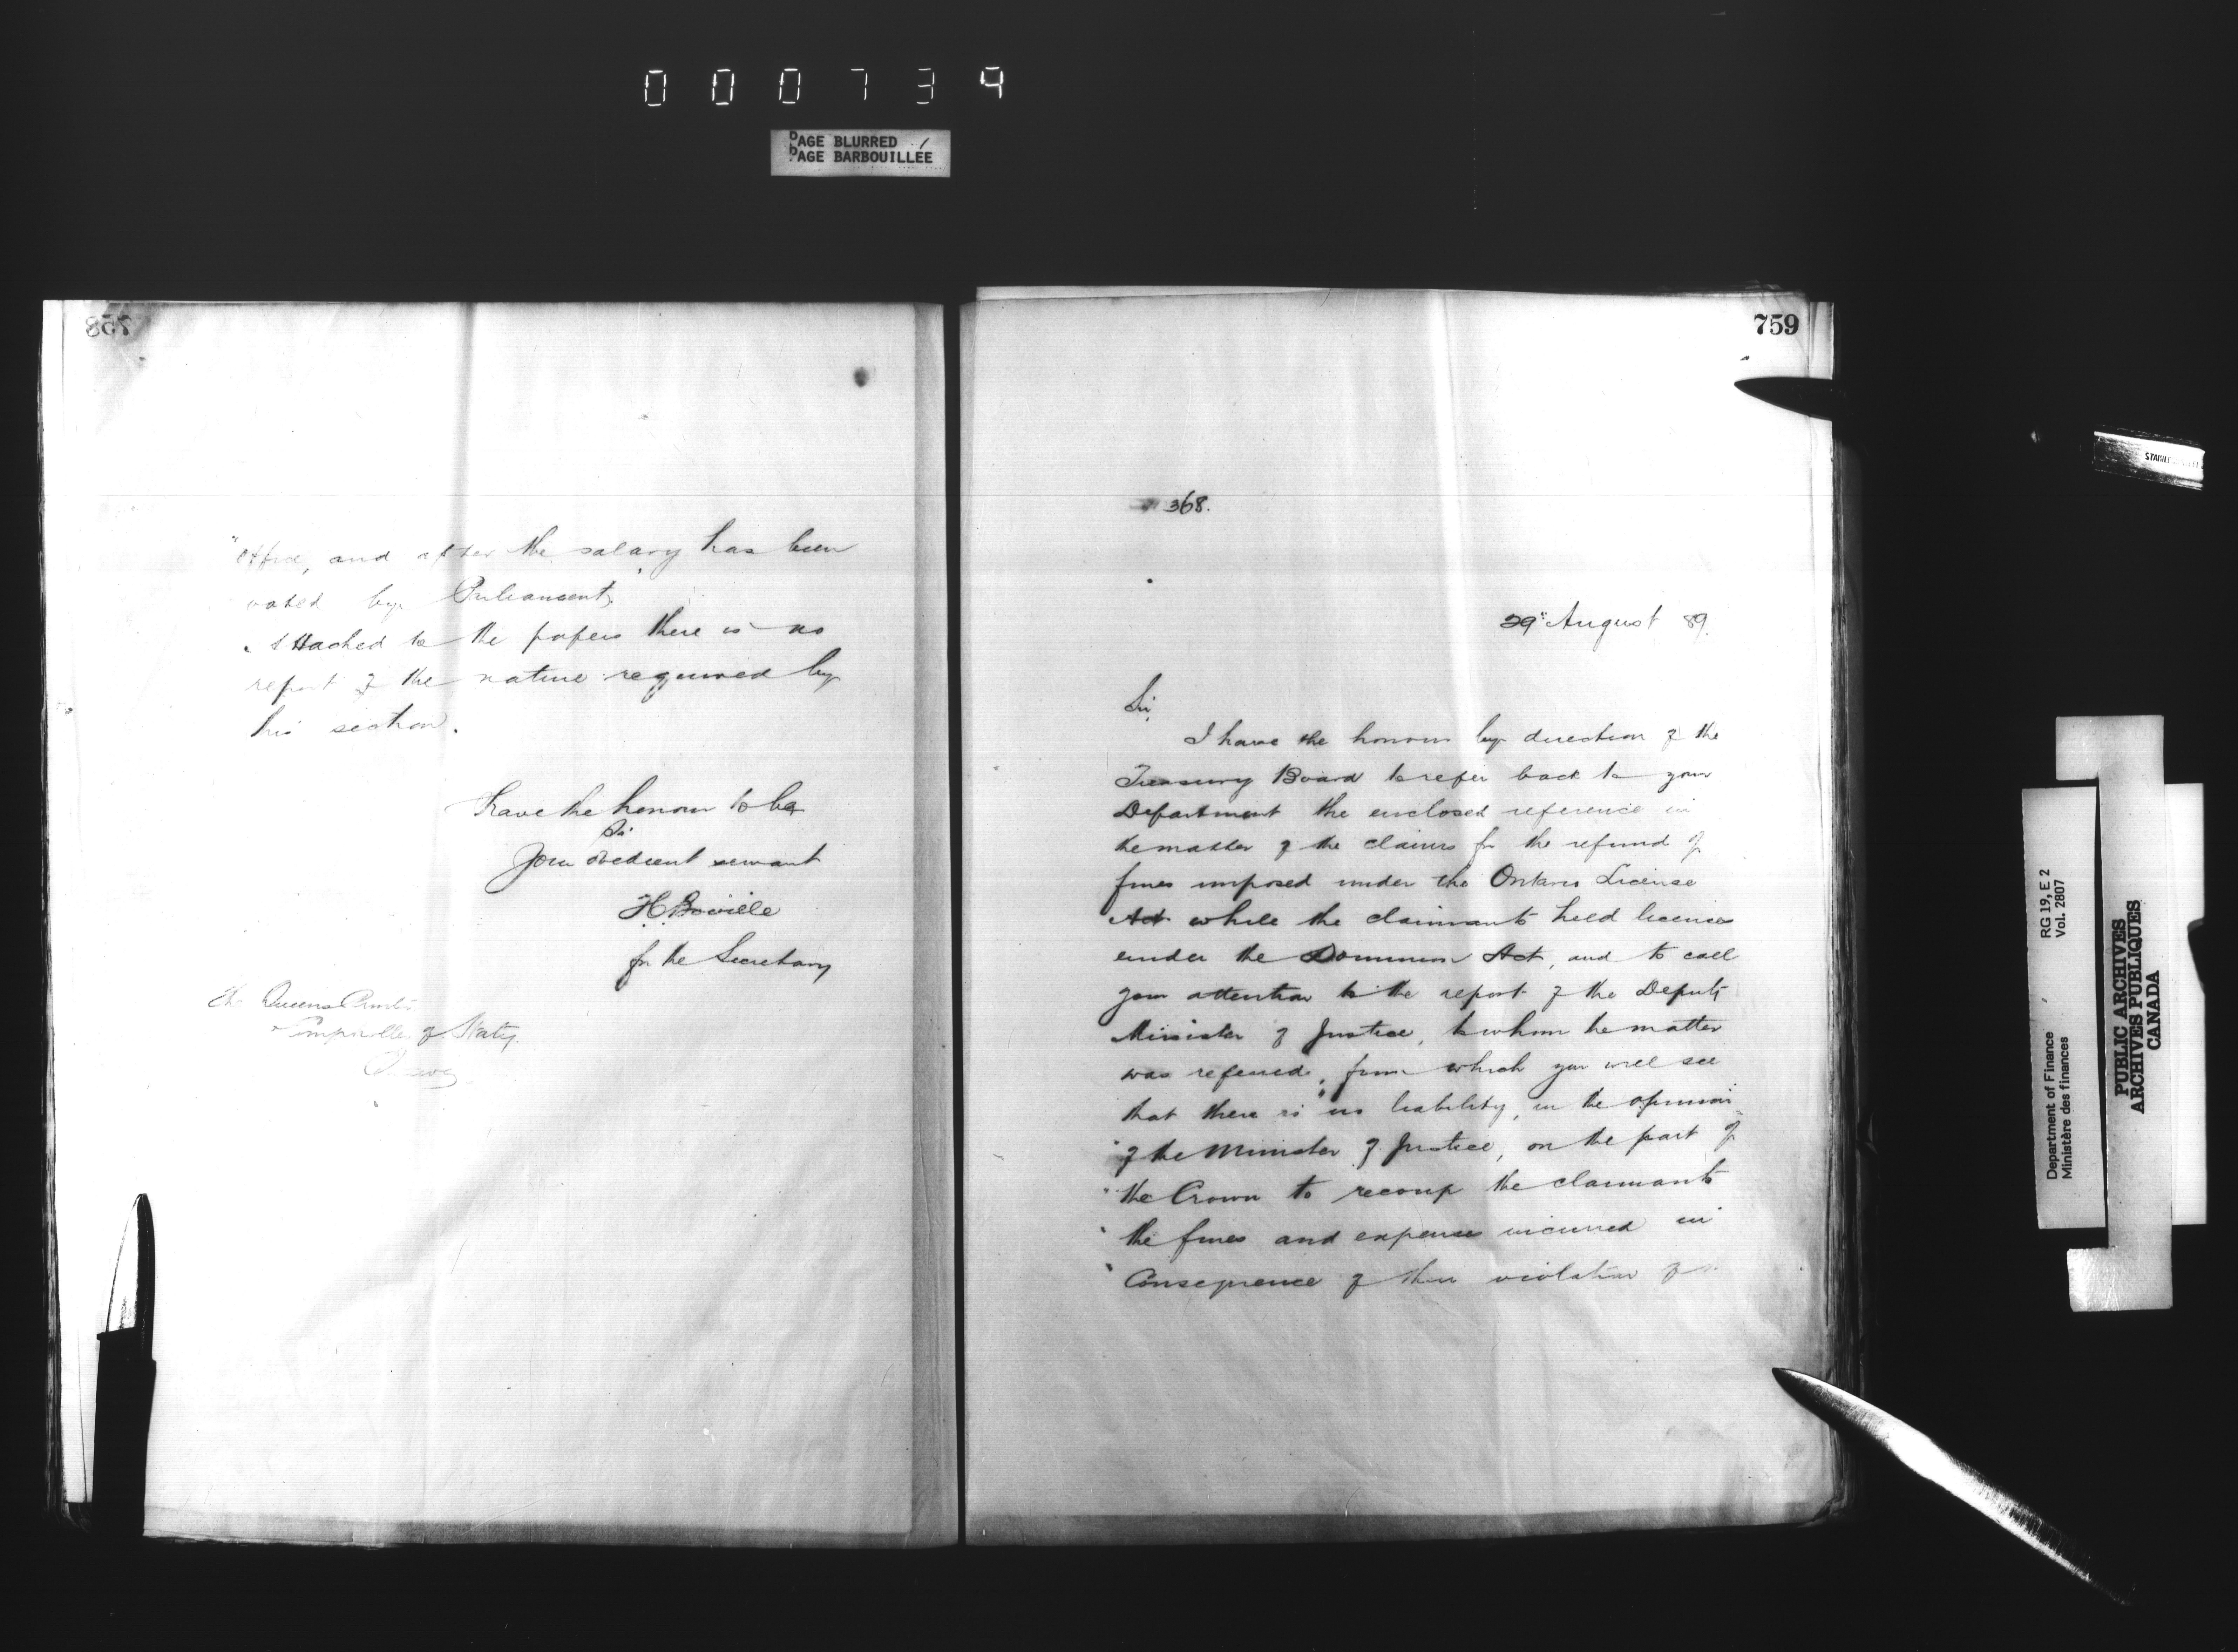 000739
PAGE BLURRED
PAGE BARBOUILLÉE
758
"Office, and after the salary has been
voted by Parliament."
Attached to the papers there is no
report of the nature required by
this section.
have the honour to be
Sir
Your obedient servant
H. Boville
for the Secretary
The Queens Printer
Comptroller of Staty.
Ottawa
759
368.
29th August 89.
Sir,
I have the honour by direction of the
Treasury Board to refer back to your
Department the enclosed reference in
the matter of the claims for the refund of
fines imposed under the Ontario License
Act while the claimants held licenses
under the Dominion Act, and to call
your attention to the report of the Deputy
Minister of Justice, to whom the matter
was referred, from which you will see
that there is "no liability, in the opinion
"of the Minister of Justice, on the part of
"the Crown to recoup the claimants
"the fines and expenses incurred in
"Consequence of their violation of
STANLEY
RG 19, E 2
Vol. 2807
Department of Finance
Ministère des finances
PUBLIC ARCHIVES
ARCHIVES PUBLIQUES
CANADA